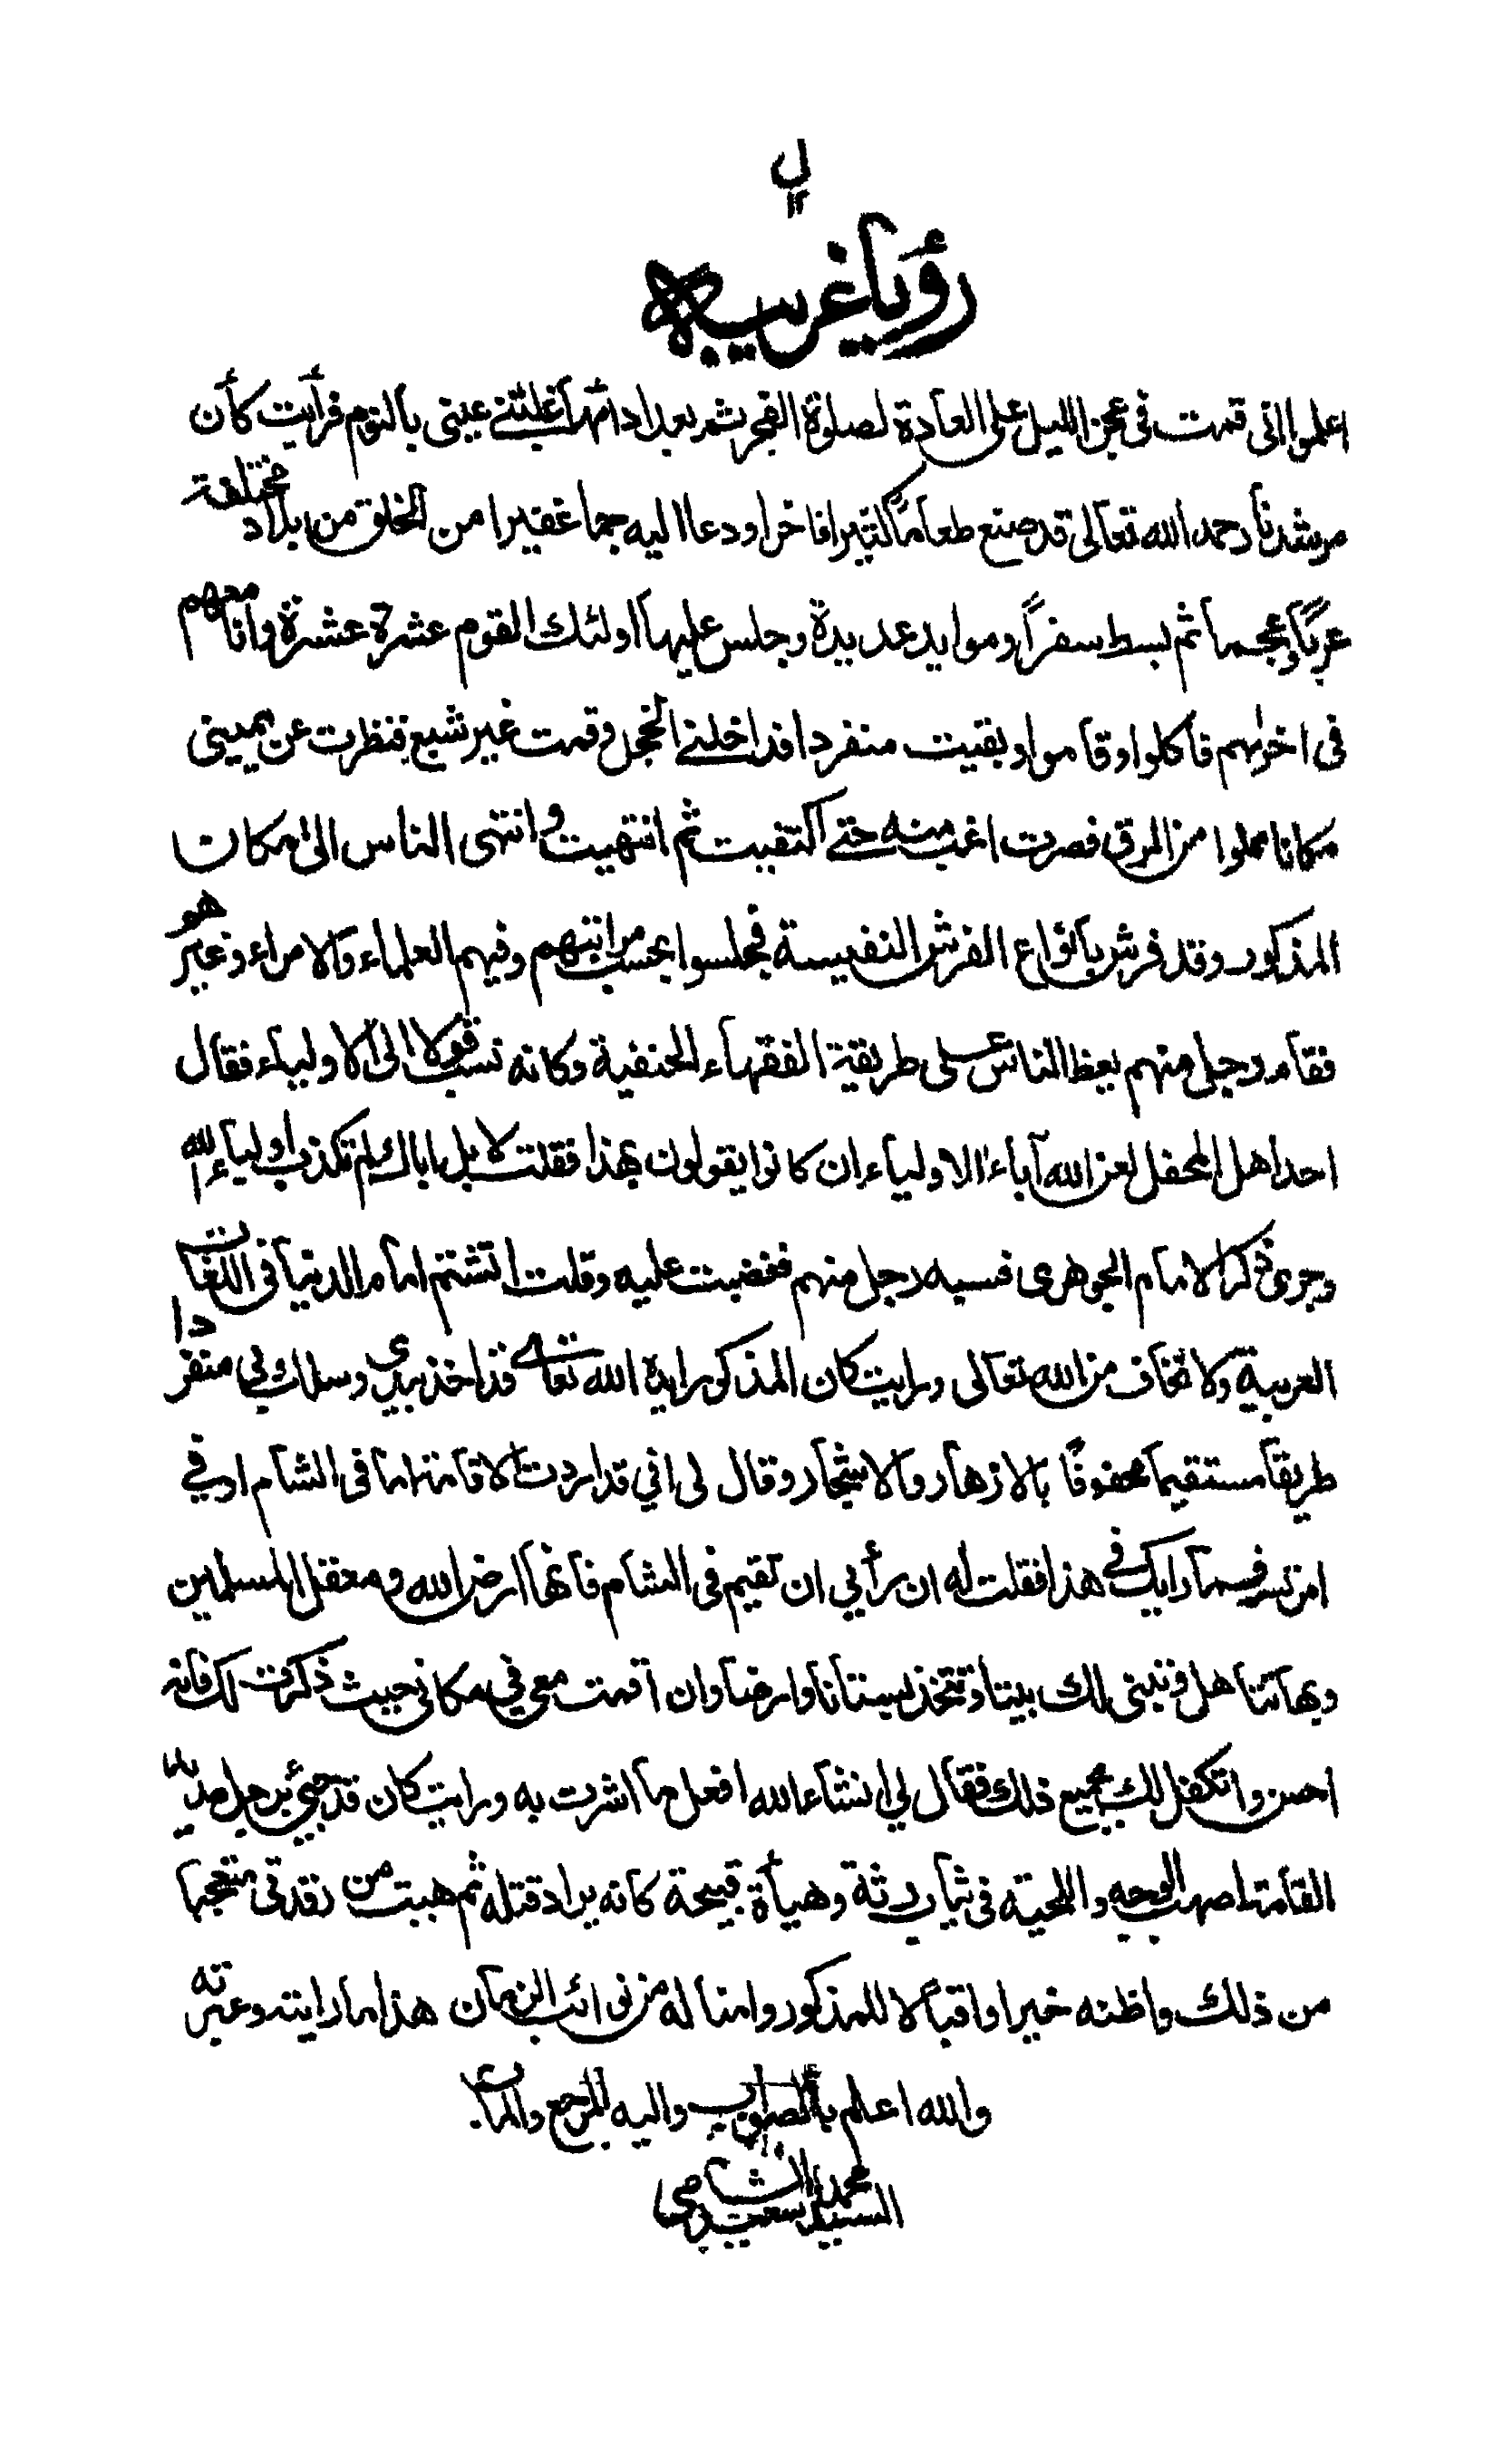 رؤيا غريبه
اعلموا اني قمت في عجز الليل على العادة لصلوة الفجر ثم بعد ادائها غلبتني عيني بالنوم فرأيت كأن
مرشدنا رحمه الله تعالى قد صنع طعاما كثيرا فاخرا ودعا اليه جما غفيرا من الخلق من بلاد مختلفة
عربا وعجما ثم بسط سفرا وموايد عديدة وجلس عليها اولئك القوم عشرة عشرة وانا معهم
في اخرهم فاكلوا وقاموا وبقيت منفردا فداخلني الخجل وقمت غير شبع فنظرت عن يميني
مكانا مملوا من المرق فصرت اغب منه حتى اكتفيت ثم انتهيت وانتهى الناس الى مكان
المذكور وقد فرش بانواع الفرش النفيسة فجلسوا بحسب مراتبهم وفيهم العلماء والامراء وغيرهم
فقام رجل منهم يعظ الناس على طريقة الفقهاء الحنفية وكانه نسب قولا الى الاولياء فقال
احد اهل المحفل لعن الله آباء الاولياء ان كانوا يقولون بهذا فقلت لا بل اباك لم تكذب اولياء الله
وجرى ذكر الامام الجوهرى فسبه رجل منهم فغضبت عليه وقلت اتشتم امام الدنيا في اللغات
العربية ولا تخاف من الله تعالى ورايت كان المذكور ايده الله تعالى قد اخذ بيدي وسلك بي منفردا
طريقا مستقيما محفوفا بالازهار والاشجار وقال لي اني قد اردت الاقامة اما في الشام او في
ازمير فما رايك في هذا فقلت له ان رأيي ان تقيم في الشام فانها ارض الله ومعقل المسلمين
وبها تتاهل ونبني لك بيتا وتتخذ بستانا وارضا وان اقمت معي في مكاني حيث ذكرت لك فانه
احسن واتكفل لك بجميع ذلك فقال لي ان شاء الله افعل ما اشرت به ورايت كان قد جيئ برجل مديد
القامة اصهب الوجه واللحية في ثياب رثة وهيأة قبيحة كانه يراد قتله ثم هببت من رقدتي متعجبا
من ذلك واظنه خيرا واقبالا للمذكور وامنا له من نوائب الزمان هذا ما رايته وعبرته
والله اعلم بالصواب واليه المرجع والمآب
السيد محمد سعيد الشامي